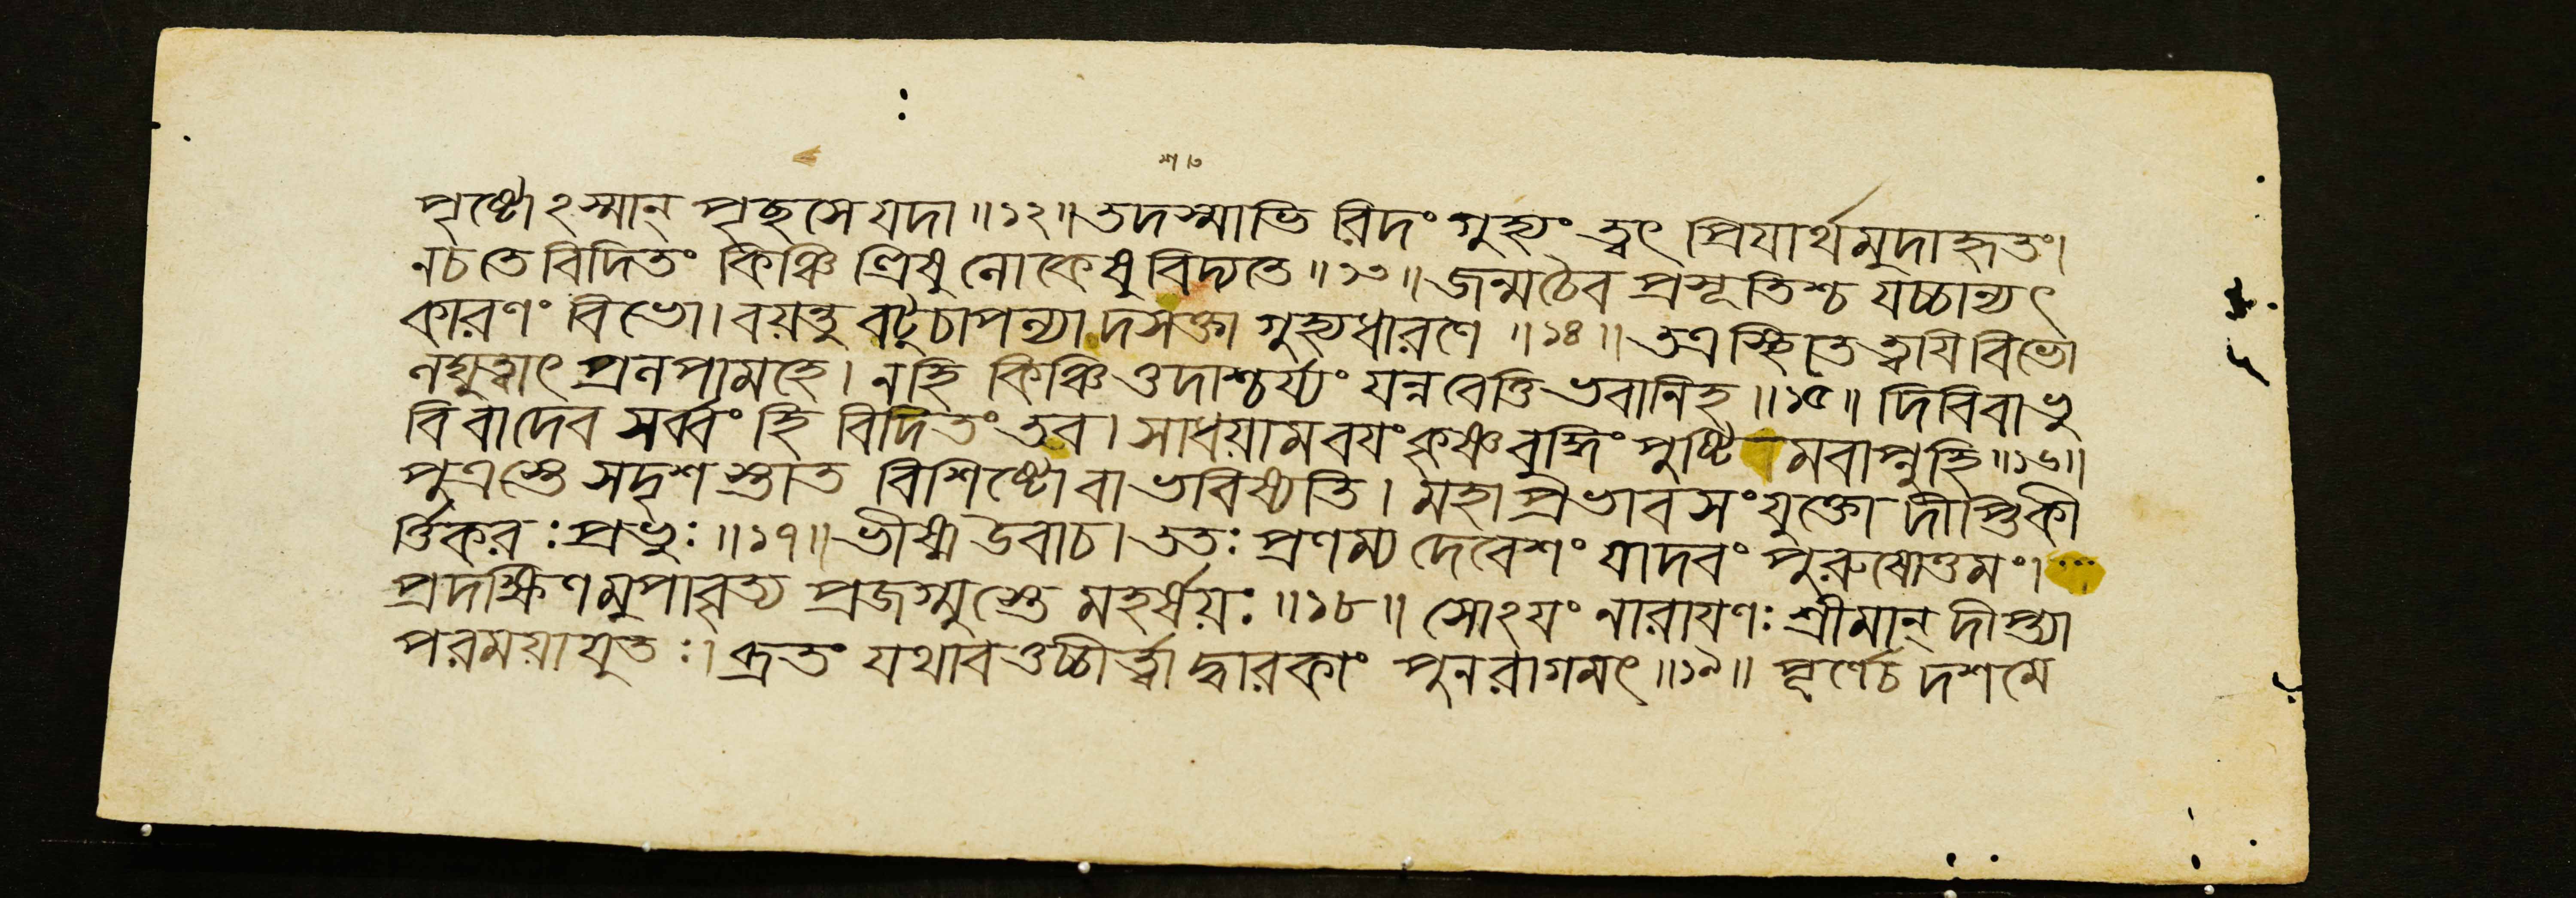 পৃষ্টোঽস্মান্ পৃছসে যদা॥১২॥তদস্মাভি রিদং গুহ্যং ত্বৎ প্রিযার্থমুদাহৃতং।
নচ তে বিদিতং কিঞ্চি ত্ত্রিষু লোকেষু বিদ্যতে॥১৩॥জন্মচৈব প্রসূতিশ্চ যচ্চান্যৎ
কারণং বিভো। বয়ন্তু বটুচাপল্যাদসক্তা গুহ্যধারণে॥১৪॥তত্র স্থিতে ত্বযি বিভো
লঘুত্বাৎ প্রলপামহে। নহি কিঞ্চিত্তদাশ্চর্য্যং যন্ন বেত্তি ভবানিহ॥১৫॥দিবি বা ভু
বি বা দেব সর্ব্বং হি বিদিতং তব। সাধয়াম বযং কৃষ্ণ বুদ্ধিং পুষ্টি মবাপ্নুহি॥১৬॥
পুত্রস্তে সদৃশ স্তাত বিশিষ্টো বা ভবিষ্যতি। মহাপ্রভাবসংযুক্তো দীপ্তিকী
র্ত্তিকরঃ প্রভুঃ॥১৭॥ভীষ্ম উবাচ। ততঃ প্রণম্য দেবেশং যাদবং পুরুষোত্তমং।
প্রদক্ষিণমুপাবৃত্য প্রজগ্মুস্তে মহর্ষয়ঃ॥১৮॥সোঽযং নারাযণঃ শ্রীমান্ দীপ্ত্যা
পরময়া যুতঃ। ব্রতং যথাবত্তচ্চীর্ত্বা দ্বারকাং পুনরাগমৎ॥১৯॥পূর্ণে চ দশমে